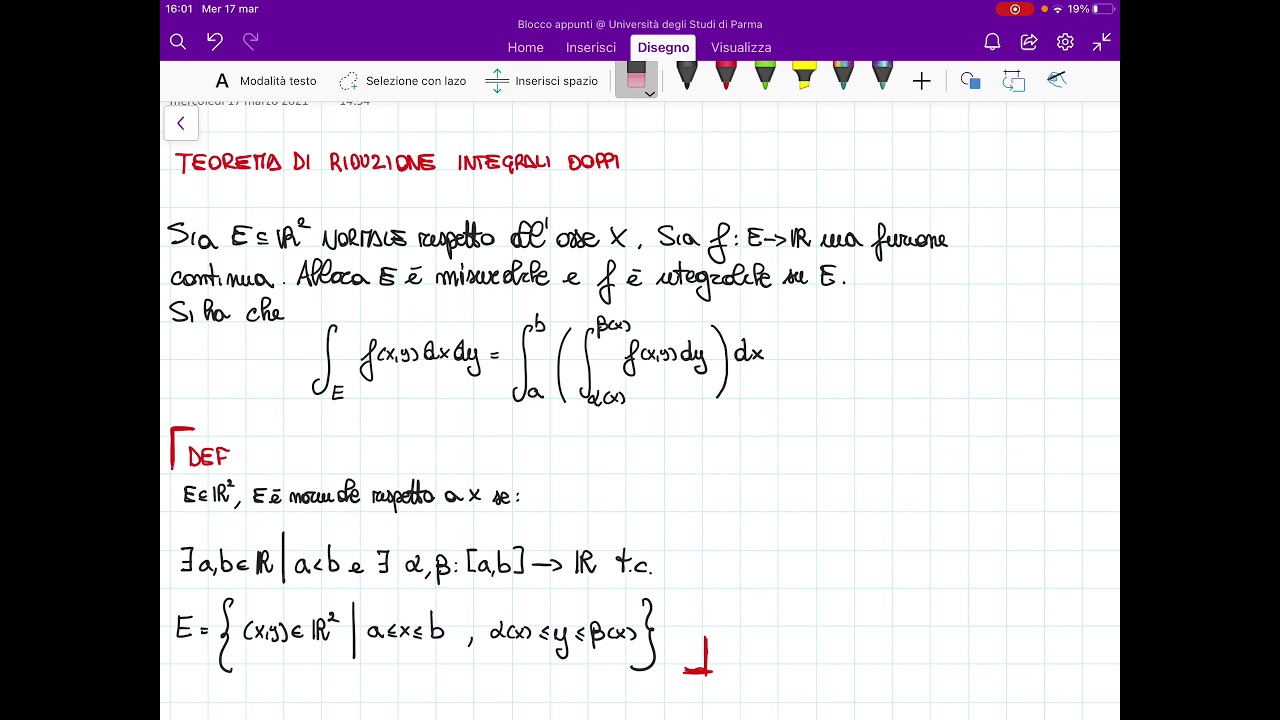 16:01 Mer 17 mar 19%
Blocco appunti @ Università degli Studi di Parma
Home Inserisci Disegno Visualizza
A Modalità testo Selezione con lazo Inserisci spazio
mercoledì 17 marzo 2021 14:54
TEOREMA DI RIDUZIONE INTEGRALI DOPPI
Sia E ⊆ ℝ² NORMALE rispetto all' asse X. Sia f: E → ℝ una funzione
continua. Allora E è misurabile e f è integrabile su E.
Si ha che
∫_E f(x,y) dx dy = ∫_a^b ( ∫_{α(x)}^{β(x)} f(x,y) dy ) dx
DEF
E ⊂ ℝ², E è normale rispetto a x se:
∃ a,b ∈ ℝ | a < b e ∃ α,β: [a,b] → ℝ t.c.
E = { (x,y) ∈ ℝ² | a ≤ x ≤ b , α(x) ≤ y ≤ β(x) }